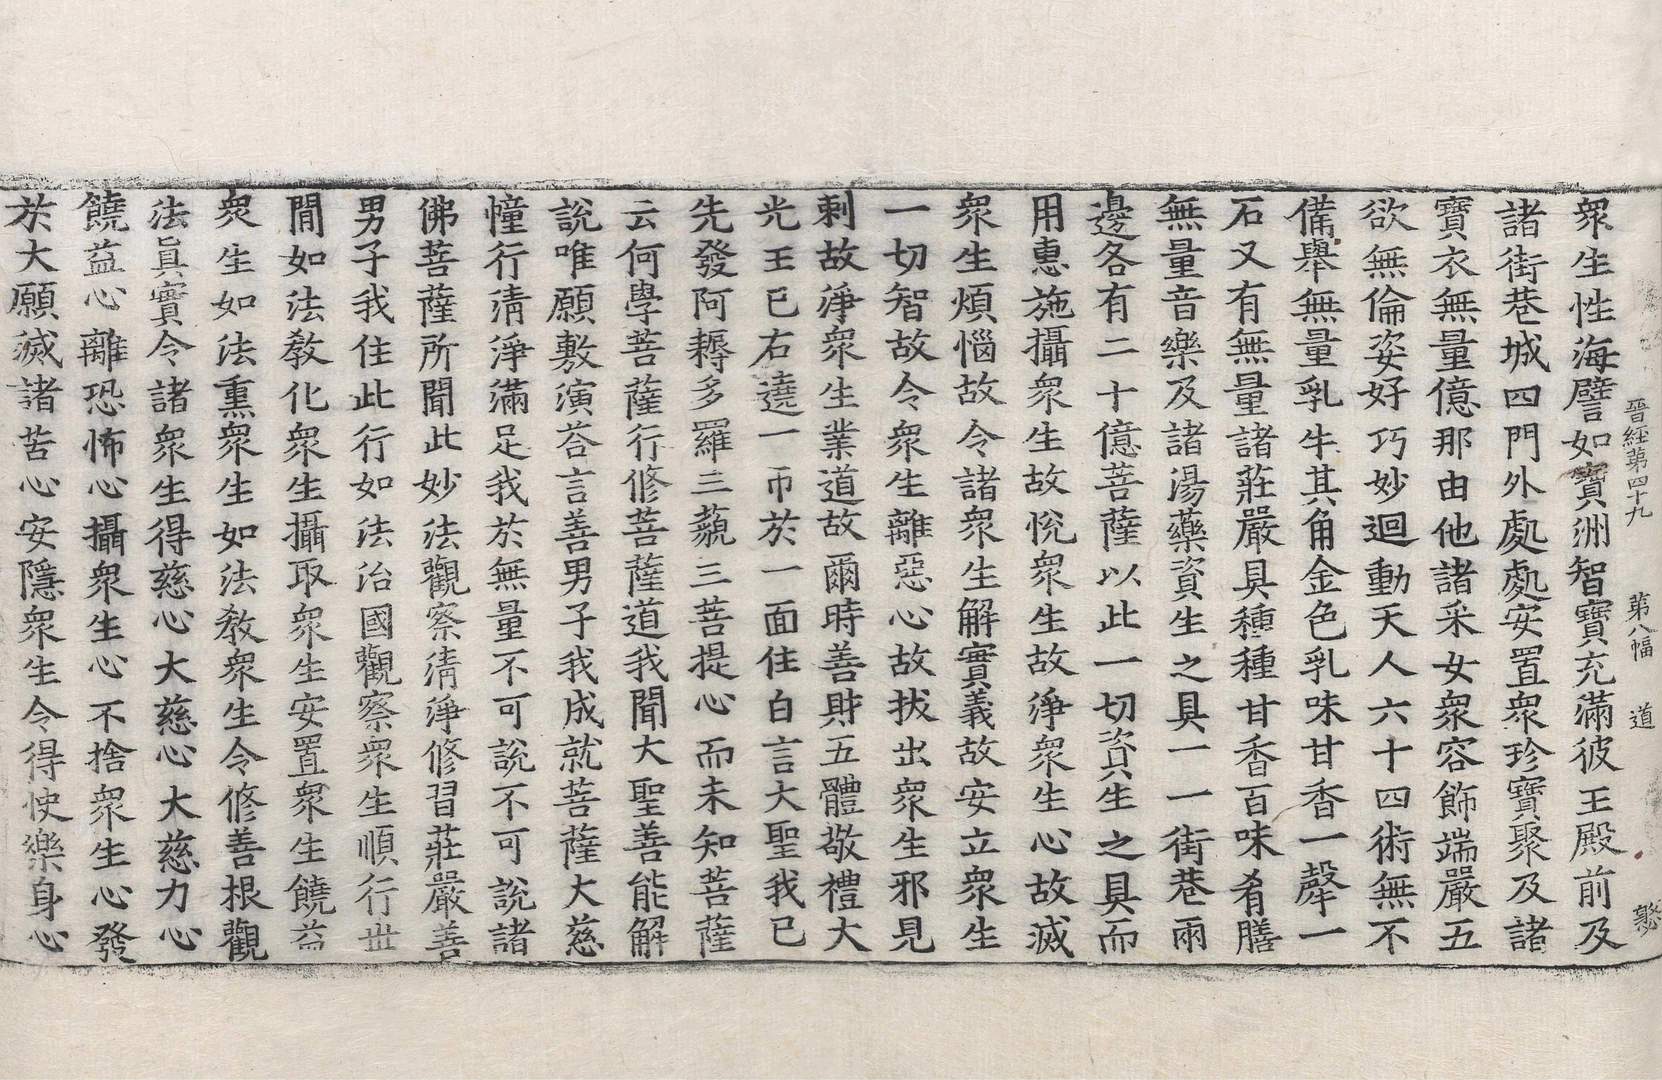 晉經第四十九 第八幅 道
衆生性海譬如寶洲智寶充滿彼王殿前及
諸街巷城四門外處處安置衆珍寶聚及諸
寶衣無量億那由他諸采女衆容飾端嚴五
欲無倫姿好巧妙迴動天人六十四術無不
備舉無量乳牛其角金色乳味甘香一𤛗一
石又有無量諸莊嚴具種種甘香百味肴膳
無量音樂及諸湯藥資生之具一一街巷兩
邊各有二十億菩薩以此一切資生之具而
用惠施攝衆生故悅衆生故淨衆生心故滅
衆生煩惱故令諸衆生解實義故安立衆生
一切智故令衆生離惡心故拔出衆生邪見
刺故淨衆生業道故爾時善財五體敬禮大
光王已右遶一帀於一面住白言大聖我已
先發阿耨多羅三藐三菩提心而未知菩薩
云何學菩薩行修菩薩道我聞大聖善能解
說唯願敷演荅言善男子我成就菩薩大慈
幢行淸淨滿足我於無量不可說不可說諸
佛菩薩所聞此妙法觀察淸淨修習莊嚴善
男子我住此行如法治國觀察衆生順行世
閒如法敎化衆生攝取衆生安置衆生饒益
衆生如法熏衆生如法敎衆生令修善根觀
法眞實令諸衆生得慈心大慈心大慈力心
饒益心離恐怖心攝衆生心不捨衆生心發
於大願滅諸苦心安隱衆生令得快樂身心